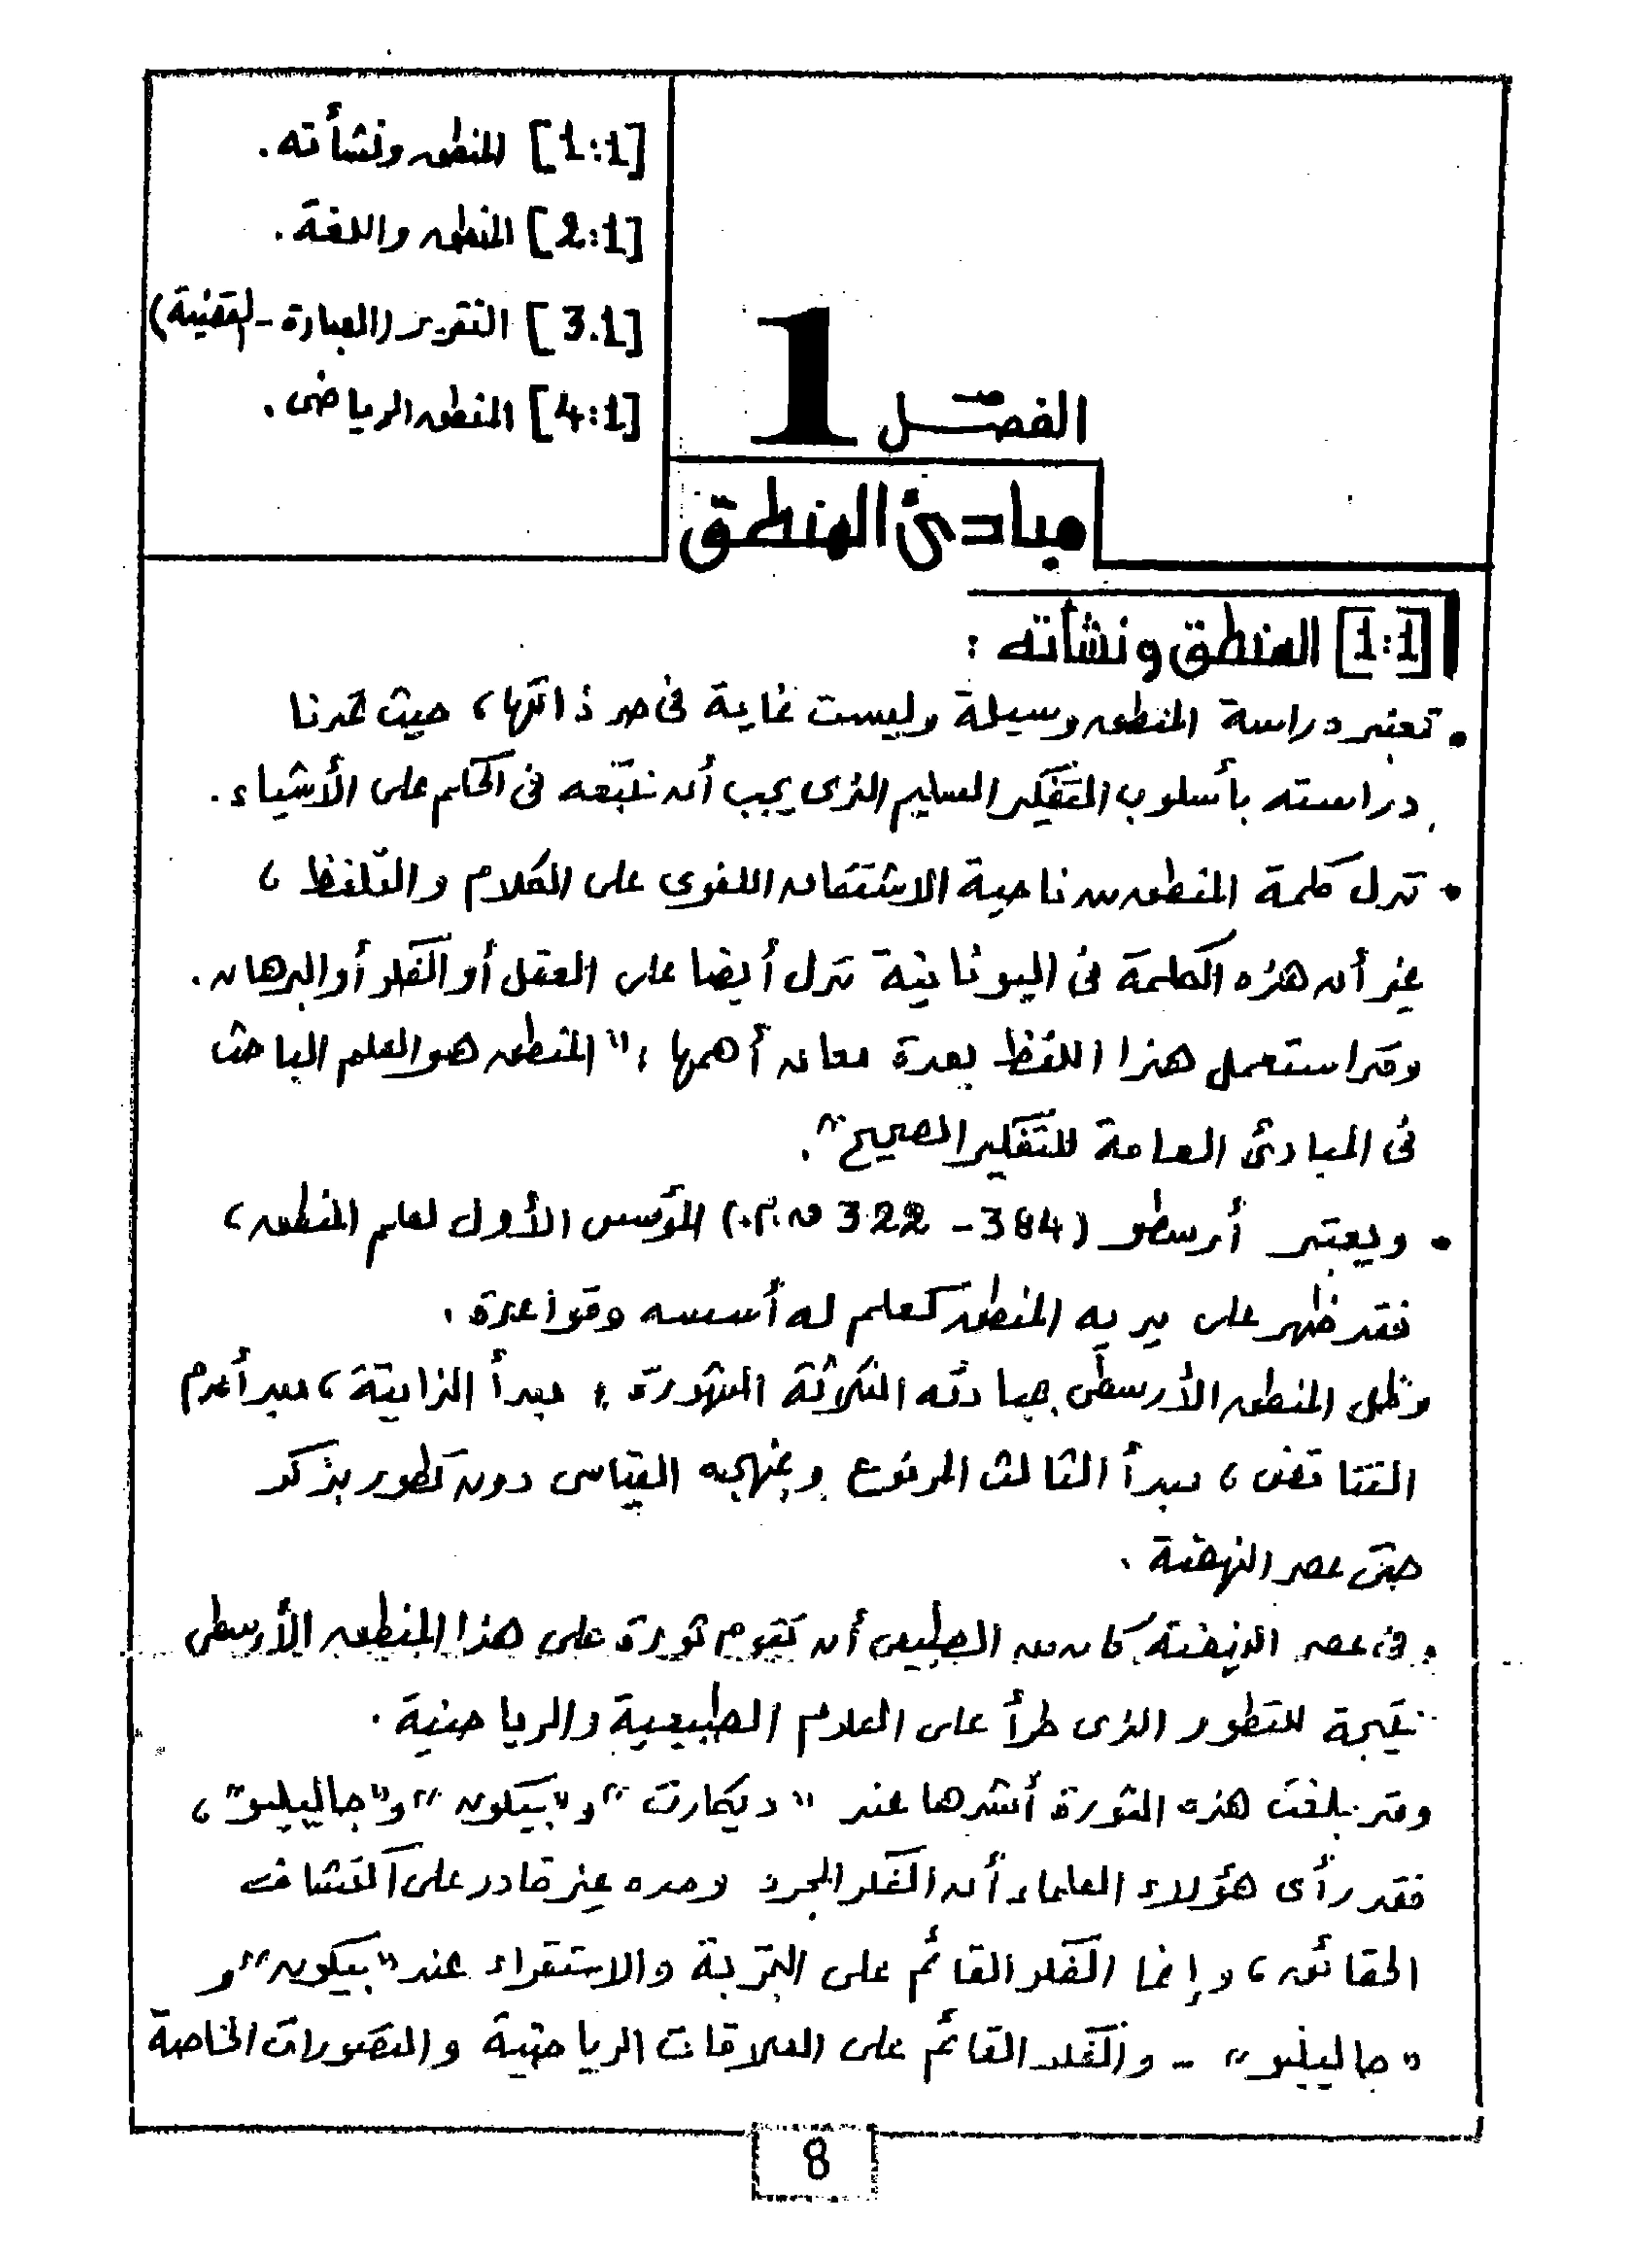 [1:1] المنطق ونشأته .
[2:1] المنطق واللغة .
[3.1] التقرير (العبارة - القضية)
[4:1] المنطق الرياضى .
الفصل 1
مبادئ المنطق
[1:1] المنطق ونشأته :
• تعتبر دراسة المنطق وسيلة وليست غاية فى حد ذاتها ، حيث تمدنا
دراسته بأسلوب التفكير السليم الذى يجب أن نتبعه فى الحكم على الأشياء .
• تدل كلمة المنطق من ناحية الاشتقاق اللغوى على الكلام والتلفظ ،
غير أن هذه الكلمة فى اليونانية تدل أيضا على العقل أو الفكر أو البرهان .
وقد استعمل هذا اللفظ بعدة معان أهمها : " المنطق هو العلم الباحث
فى المبادئ العامة للتفكير الصحيح " .
• ويعتبر أرسطو ( 384 - 322 ق.م. ) المؤسس الأول لعلم المنطق ،
فقد ظهر على يديه المنطق كعلم له أسسه وقواعدة .
وظل المنطق الأرسطى بمبادئه الثلاثة المشهورة : مبدأ الذاتية ، مبدأ عدم
التناقض ، مبدأ الثالث المرفوع وبمنهجه القياسى دون تطور يذكر
حتى عصر النهضة .
• وفى عصر النهضة كان من الطبيعى أن تقوم ثورة على هذا المنطق الأرسطى
نتيجة للتطور الذى طرأ على العلوم الطبيعية والرياضية .
وقد بلغت هذه الثورة أشدها عند " ديكارت " و " بيكون " و " جاليليو " ،
فقد رأى هؤلاء العلماء أن الفكر المجرد وحده غير قادر على اكتشاف
الحقائق ، وإنما الفكر القائم على التجربة والاستقراء عند " بيكون " و
" جاليليو " - والفكر القائم على العلاقات الرياضية والتصورات الخاصة
8